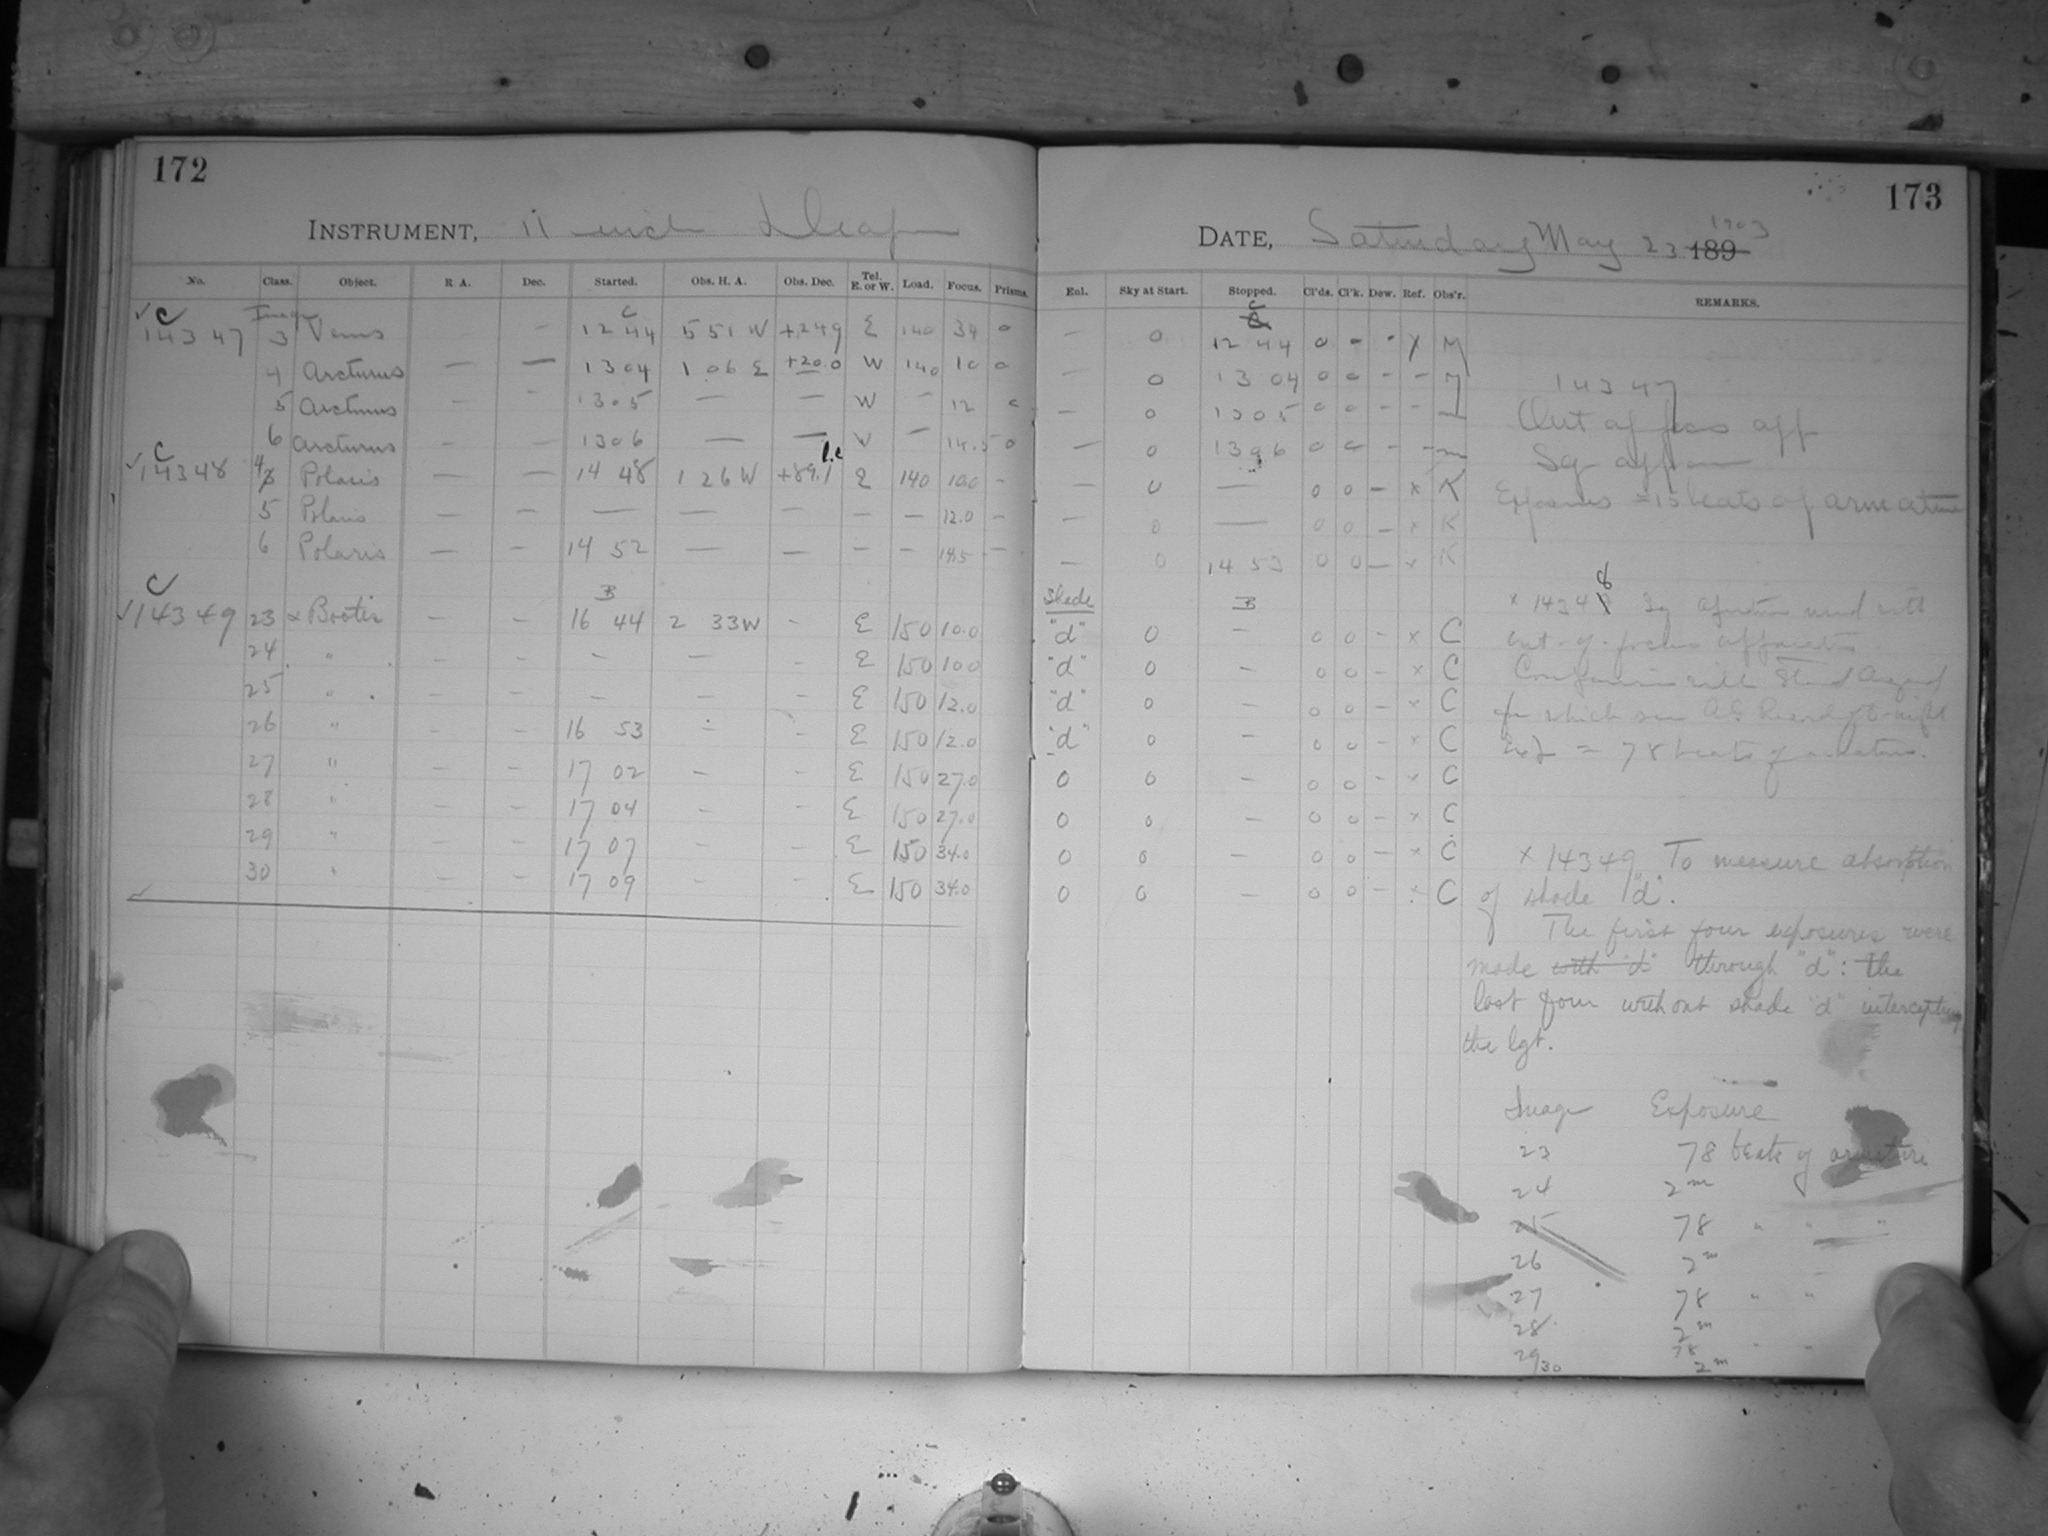 172
INSTRUMENT, 11 inch Draper
No. Class. Object. R. A. Dec. Started. Obs. H. A. Obs. Dec. Tel. E. or W. Load. Focus. Prisms.
Image C
C 14347 3 Venus — 12 44 5 51 W +24.9 E 140 34 0
4 Arcturus — — 13 04 1 06 E +20.0 W 140 10 0
5 Arcturus — — 13 05 — — W — 12 0
6 Arcturus — — 13 06 — — W — 14.5 0
C 14348 4 Polaris — — 14 48 1 26 W +89.1 E 140 10.0 —
5 Polaris — — — — — — — 12.0 —
6 Polaris — — 14 52 — — — — 14.5 —
C B
14349 23 α Bootis — — 16 44 2 33 W — E 150 10.0
24 " — — — — — E 150 10.0
25 " — — — — — E 150 12.0
26 " — — 16 53 — — E 150 12.0
27 " — — 17 02 — — E 150 27.0
28 " — — 17 04 — — E 150 27.0
29 " — — 17 07 — — E 150 34.0
30 " — — 17 09 — — E 150 34.0
173
DATE, Saturday May 23 189 1903
Eul. Sky at Start. Stopped. Cl'ds. Cl'k. Dew. Ref. Obs'r. REMARKS.
C
— 0 12 44 0 — — x M
— 0 13 04 0 0 — — M
— 0 13 05 0 0 — —
— 0 13 06 0 0 — — m
— 0 — 0 0 — x K
— 0 — 0 0 — x K
— 0 14 53 0 0 — x K
Shade B
"d" 0 — 0 0 — x C
"d" 0 — 0 0 — x C
"d" 0 — 0 0 — x C
"d" 0 — 0 0 — x C
0 0 — 0 0 — x C
0 0 — 0 0 — x C
0 0 — 0 0 — x C
0 0 — 0 0 — x C
14347
Out of focus app
Sq app
Exposures = 15 beats of armature
x 14348 Sq aperture used with
out-of-focus apparatus
Comparison with Stand
for which see Record to-night
Exp = 78 beats of armature.
x 14349 To measure absorption
of shade "d".
The first four exposures were
made with "d" through "d": the
last four without shade "d" intercepting
the lgt.
Image Exposure
23 78 beats of armature
24 2m
25 78 " " "
26 2m
27 78 " "
28 2m
29 78 " "
30 2m